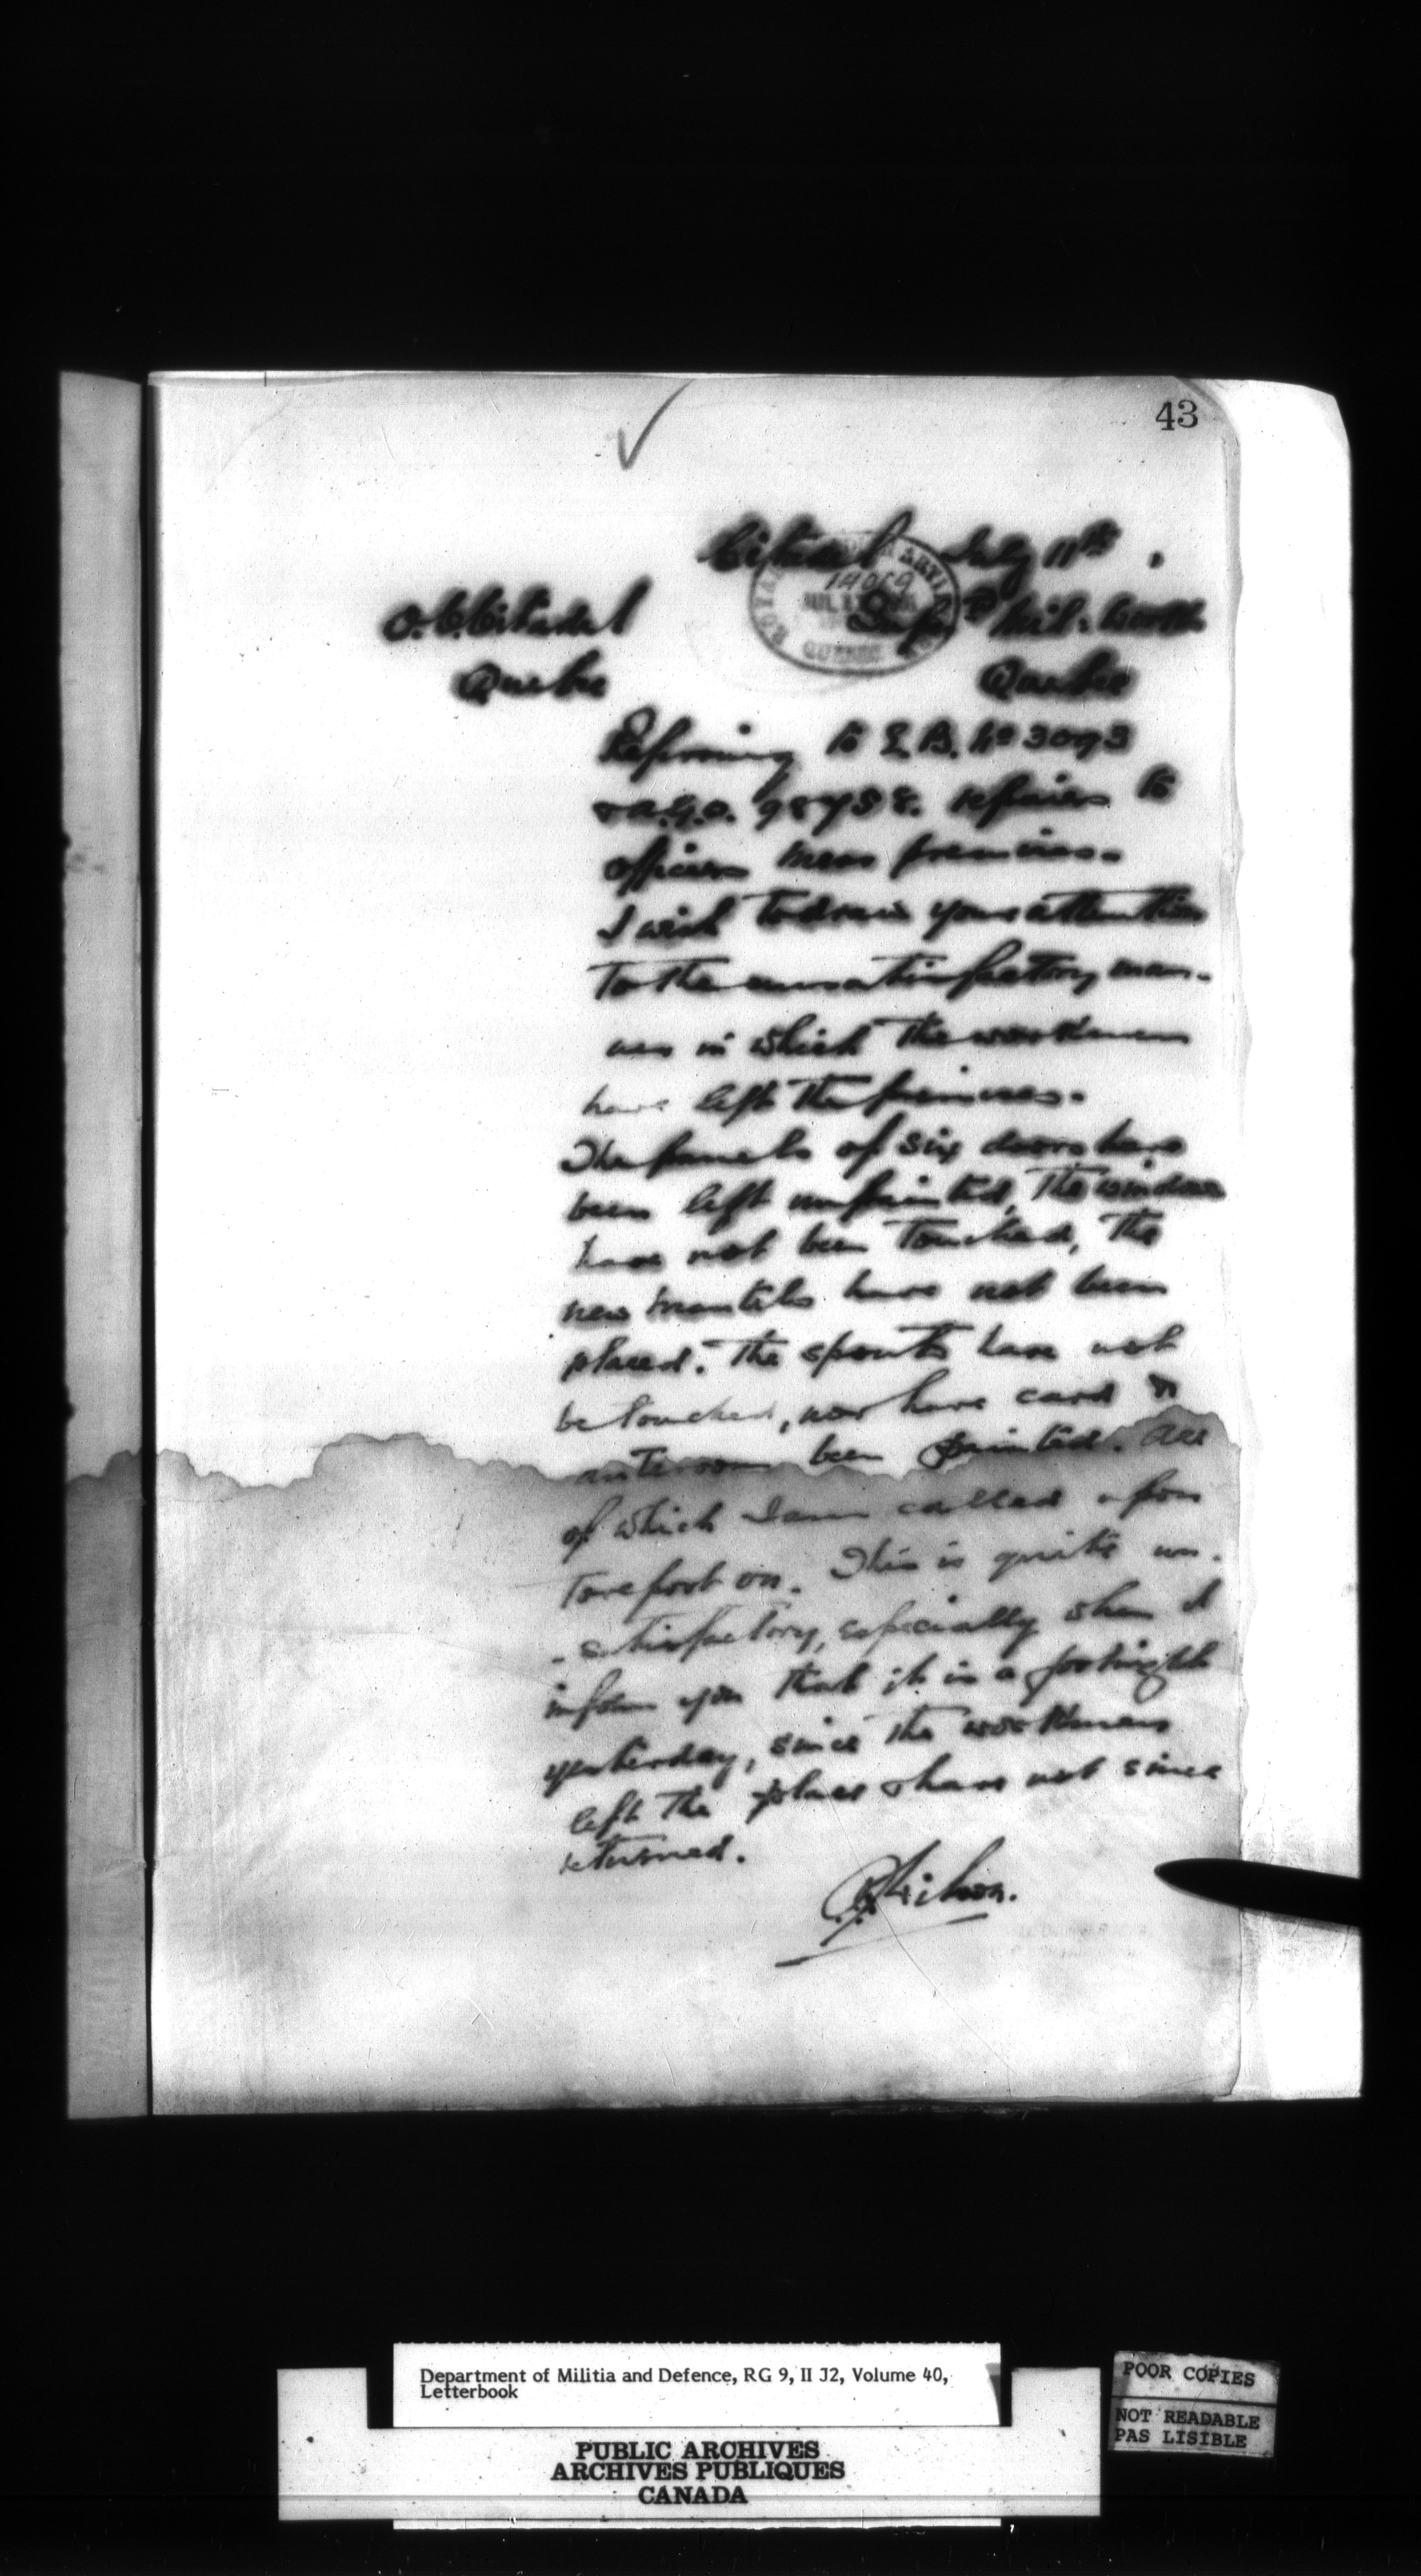 43
Citadel July 11th
14059
ROYAL ARTIL
QUEBEC
O.C. Citadel
Supt Mil: Works
Quebec
Quebec
Referring to L.B. No 3093
& A.G.O. 98758. repairs to
officers mess premises.
I wish to draw your attention
to the unsatisfactory man-
ner in which the workmen
have left the premises.
The panels of six doors have
been left unpainted, the windows
have not been touched, the
new mantels have not been
placed. The spouts have not
be touched, nor have card &
anteroom been painted. All
of which I am called upon
to report on. This is quite un-
-satisfactory, especially when I
inform you that it is a fortnight
yesterday, since the workmen
left the place & have not since
returned.
Wilson.
Department of Militia and Defence, RG 9, II J2, Volume 40,
Letterbook
PUBLIC ARCHIVES
ARCHIVES PUBLIQUES
CANADA
POOR COPIES
NOT READABLE
PAS LISIBLE